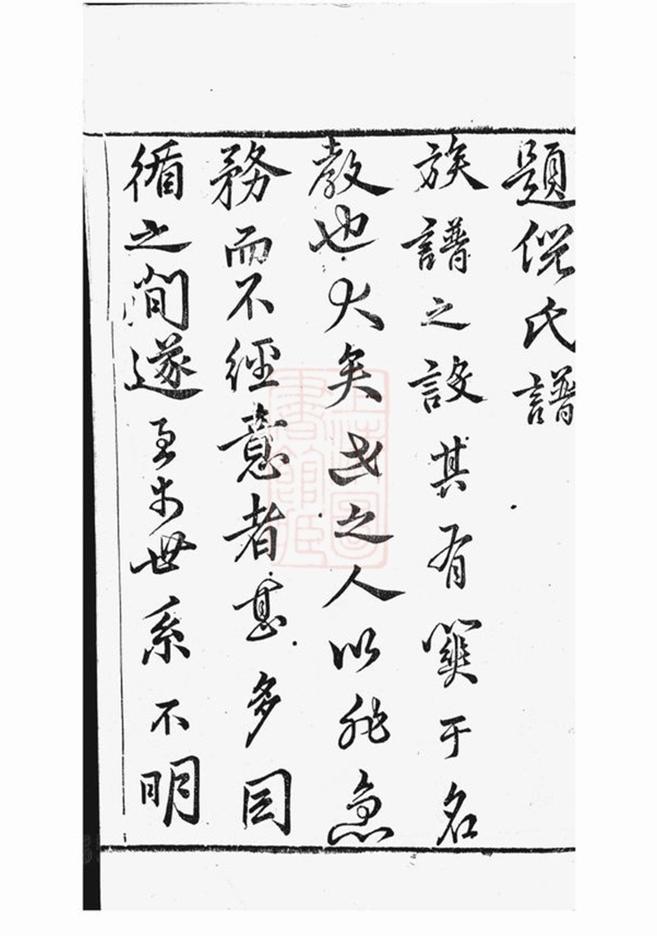 題倪氏譜
族譜之設其有關于名
教也大矣世之人以非急
務而不經意者甚多因
循之間遂至於世系不明
上海圖
書館藏